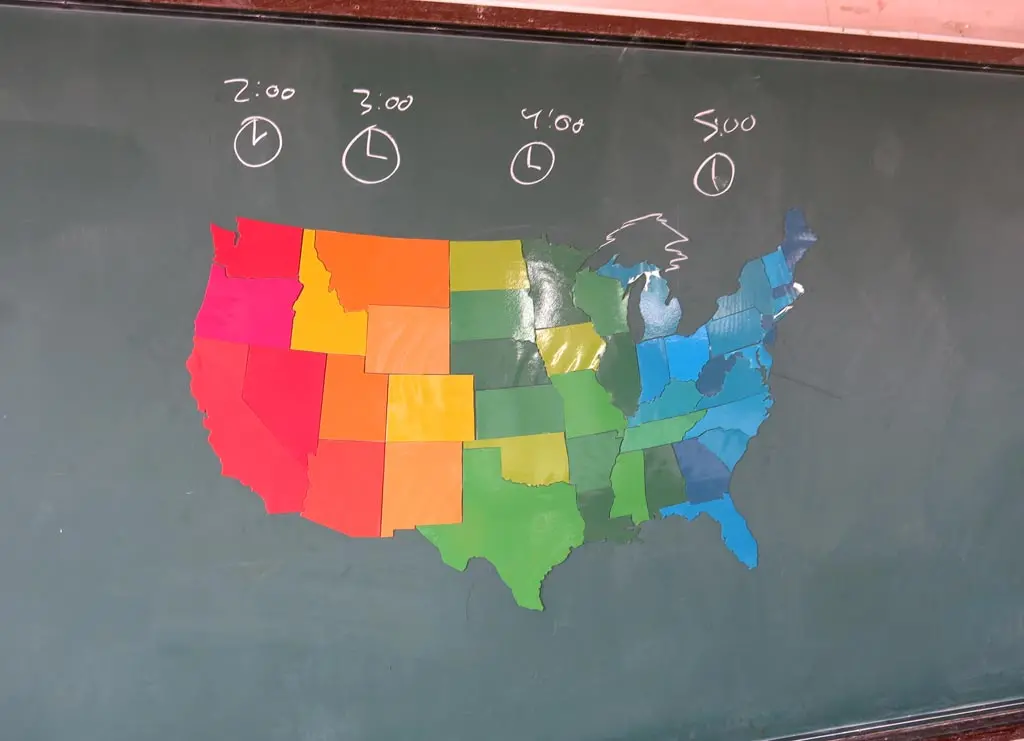 2:00
3:00
4:00
5:00